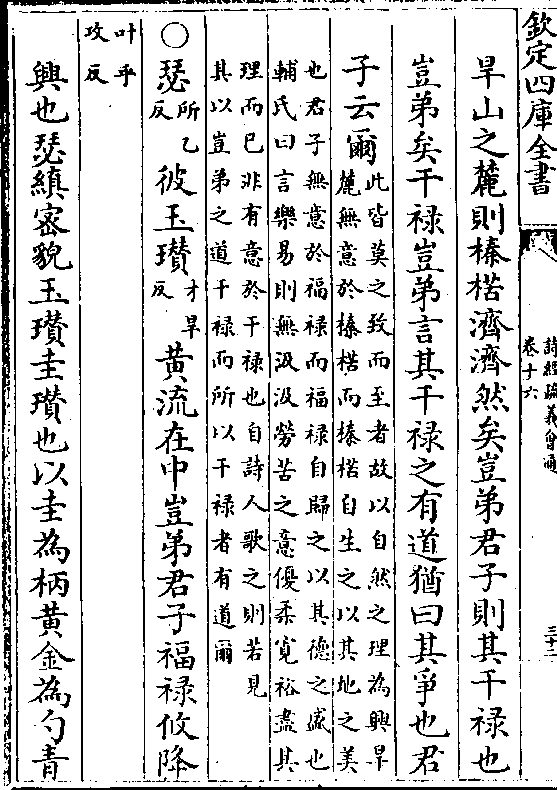 欽定四庫全書
詩經疏義會通
卷十六
三十二
旱山之麓則榛楛濟濟然矣豈弟君子則其干禄也
豈弟矣干禄豈弟言其干禄之有道猶曰其爭也君
子云爾
此皆莫之致而至者故以自然之理為興旱
麓無意於榛楛而榛楛自生之以其地之美
也君子無意於福禄而福禄自歸之以其德之盛也
輔氏曰言樂易則無汲汲勞苦之意優柔寛裕盡其
理而已非有意於干禄也自詩人歌之則若見
其以豈弟之道干禄而所以干禄者有道爾
○瑟所乙反彼玉瓉才旱反黄流在中豈弟君子福禄攸降
叶乎攻反
興也瑟縝密貌玉瓉圭瓉也以圭為柄黄金為勺青